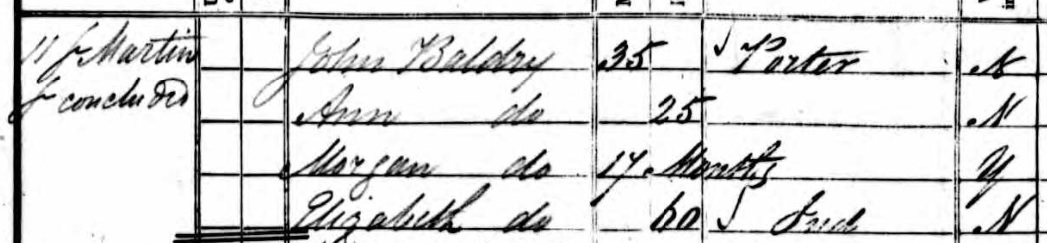 11 f Martin John Baldry 35 Porter N
f concluded Ann do 25 N
Morgan do 17 Months Y
Elizabeth do 60 Ind N